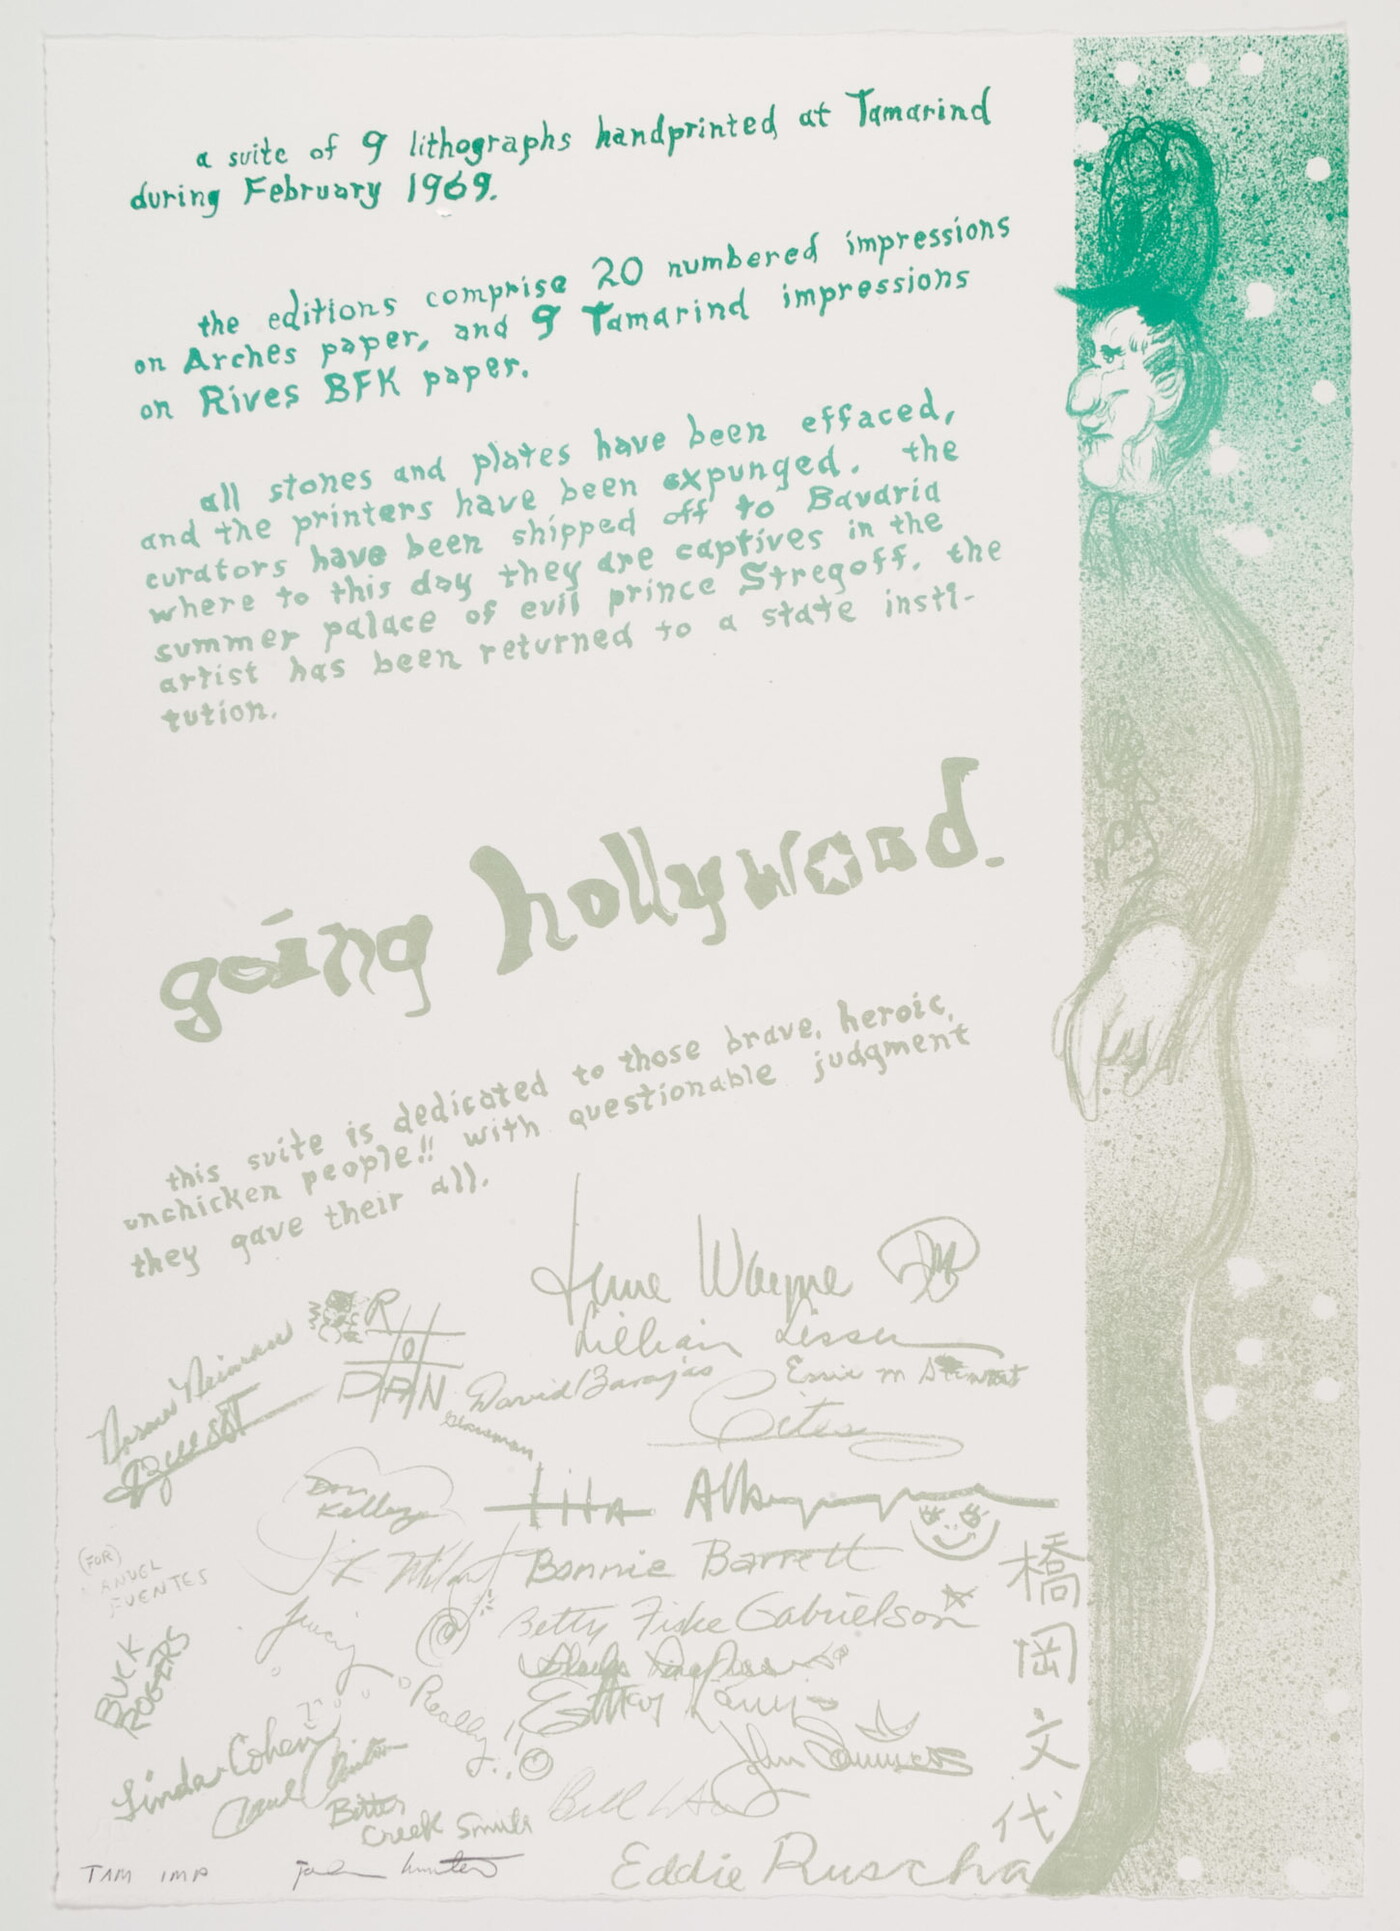 a suite of 9 lithographs handprinted at Tamarind
during February 1969.
the editions comprise 20 numbered impressions
on Arches paper, and 9 Tamarind impressions
on Rives BFK paper.
all stones and plates have been effaced,
and the printers have been expunged. the
curators have been shipped off to Bavaria
where to this day they are captives in the
summer palace of evil prince Stregoff. the
artist has been returned to a state insti-
tution.
going hollywood.
this suite is dedicated to those brave, heroic,
unchicken people!! with questionable judgment
they gave their all.
June Wayne
Lillian Lesser
R
O
DAN
David Barajas
Don Kelley
Lita Albuquerque
Bonnie Barrett
(FOR)
MANUEL
FUENTES
Betty Fiske Gabrielson
BUCK
ROGERS
Really!!
Linda Cohen
Bitter
Creek Smith
Bill
橋
岡
文
代
Eddie Ruscha
TAM IMP